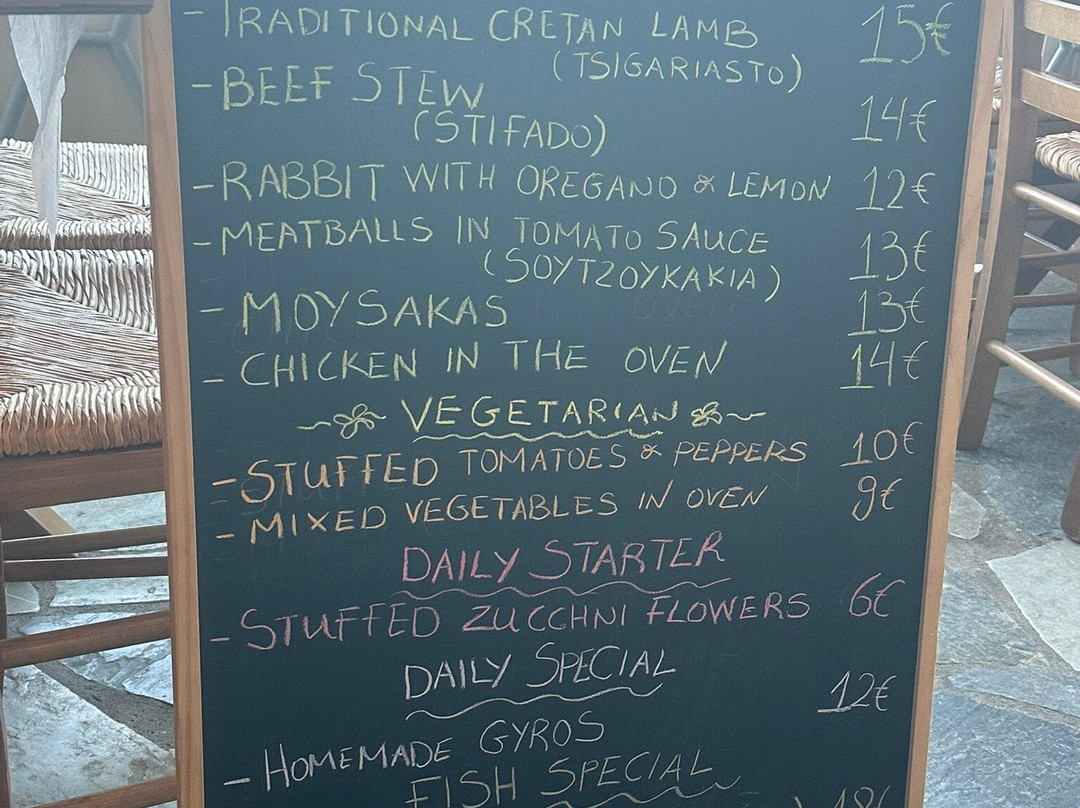 - TRADITIONAL CRETAN LAMB 15€
(TSIGARIASTO)
- BEEF STEW
(STIFADO) 14€
- RABBIT WITH OREGANO & LEMON 12€
- MEATBALLS IN TOMATO SAUCE
(SOYTZOYKAKIA) 13€
- MOYSAKAS 13€
- CHICKEN IN THE OVEN 14€
VEGETARIAN
- STUFFED TOMATOES & PEPPERS 10€
- MIXED VEGETABLES IN OVEN 9€
DAILY STARTER
- STUFFED ZUCCHNI FLOWERS 6€
DAILY SPECIAL
12€
- HOMEMADE GYROS
FISH SPECIAL